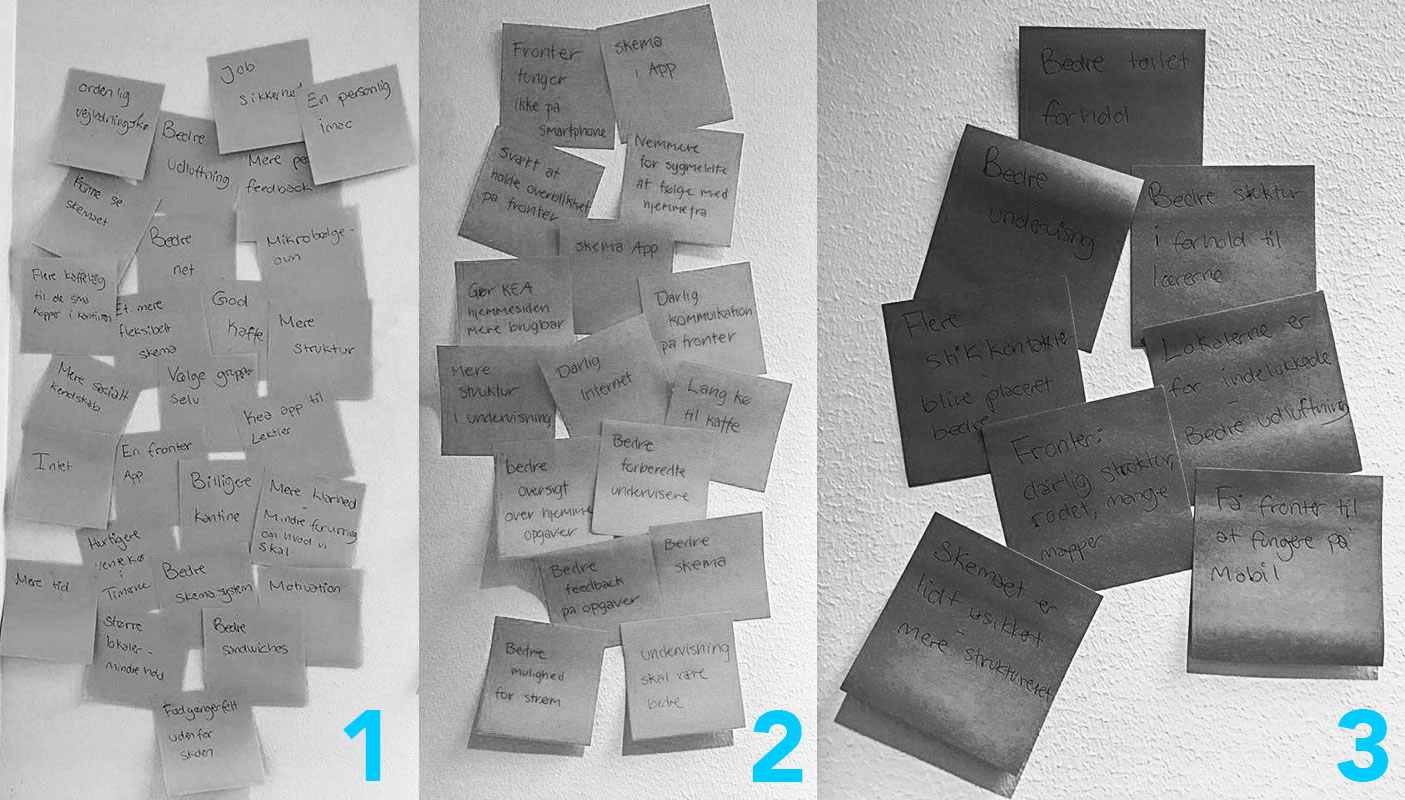 Job
sikkerhed
ordenlig
En personlig
imac
Bedre
udluftning
Mere
feedback
Kunne se
skemaet
Bedre
net
Mikrobølge-
ovn
Flere kaffelåg
til de små
kopper i kantinen
Et mere
fleksibelt
skema
God
kaffe
Mere
struktur
Mere socialt
kendskab
Vælge grupper
selv
Kea app til
Lektier
Intet
En fronter
App
Billigere
kantine
Mere klarhed
-
Mindre forvirring
om hvad vi
skal
Hurtigere
i
Timerne
Mere tid
Bedre
skema system
Motivation
større
lokaler -
Bedre
sandwiches
Fodgængerfelt
udenfor
skolen
1
Fronter
funger
ikke på
smartphone
skema
i APP
Svært at
holde overblikket
på fronter
Nemmere
for sygmeldte
at følge med
hjemmefra
skema App
Gør KEA
hjemmesiden
mere brugbar
Dårlig
kommuikation
på fronter
Mere
struktur
i undervisning
Dårlig
Internet
Lang kø
til kaffe
bedre
oversigt
over hjemme
opgaver
Bedre
forberedte
undervisere
Bedre
feedback
på opgaver
Bedre
skema
Bedre
mulighed
for strøm
undervisning
skal være
bedre
2
Bedre toilet
forhold
Bedre
undervisng
Bedre stuktur
i forhold til
lærerne
Flere
stikkontakter
blive placeret
bedre
Lokalerne er
for indelukkede
-
Bedre udluftning
Fronter:
dårlig struktur,
rodet, mange
mapper
Få fronter til
at fungere på
Mobil
Skemaet er
lidt usikkert
-
mere struktureret
3